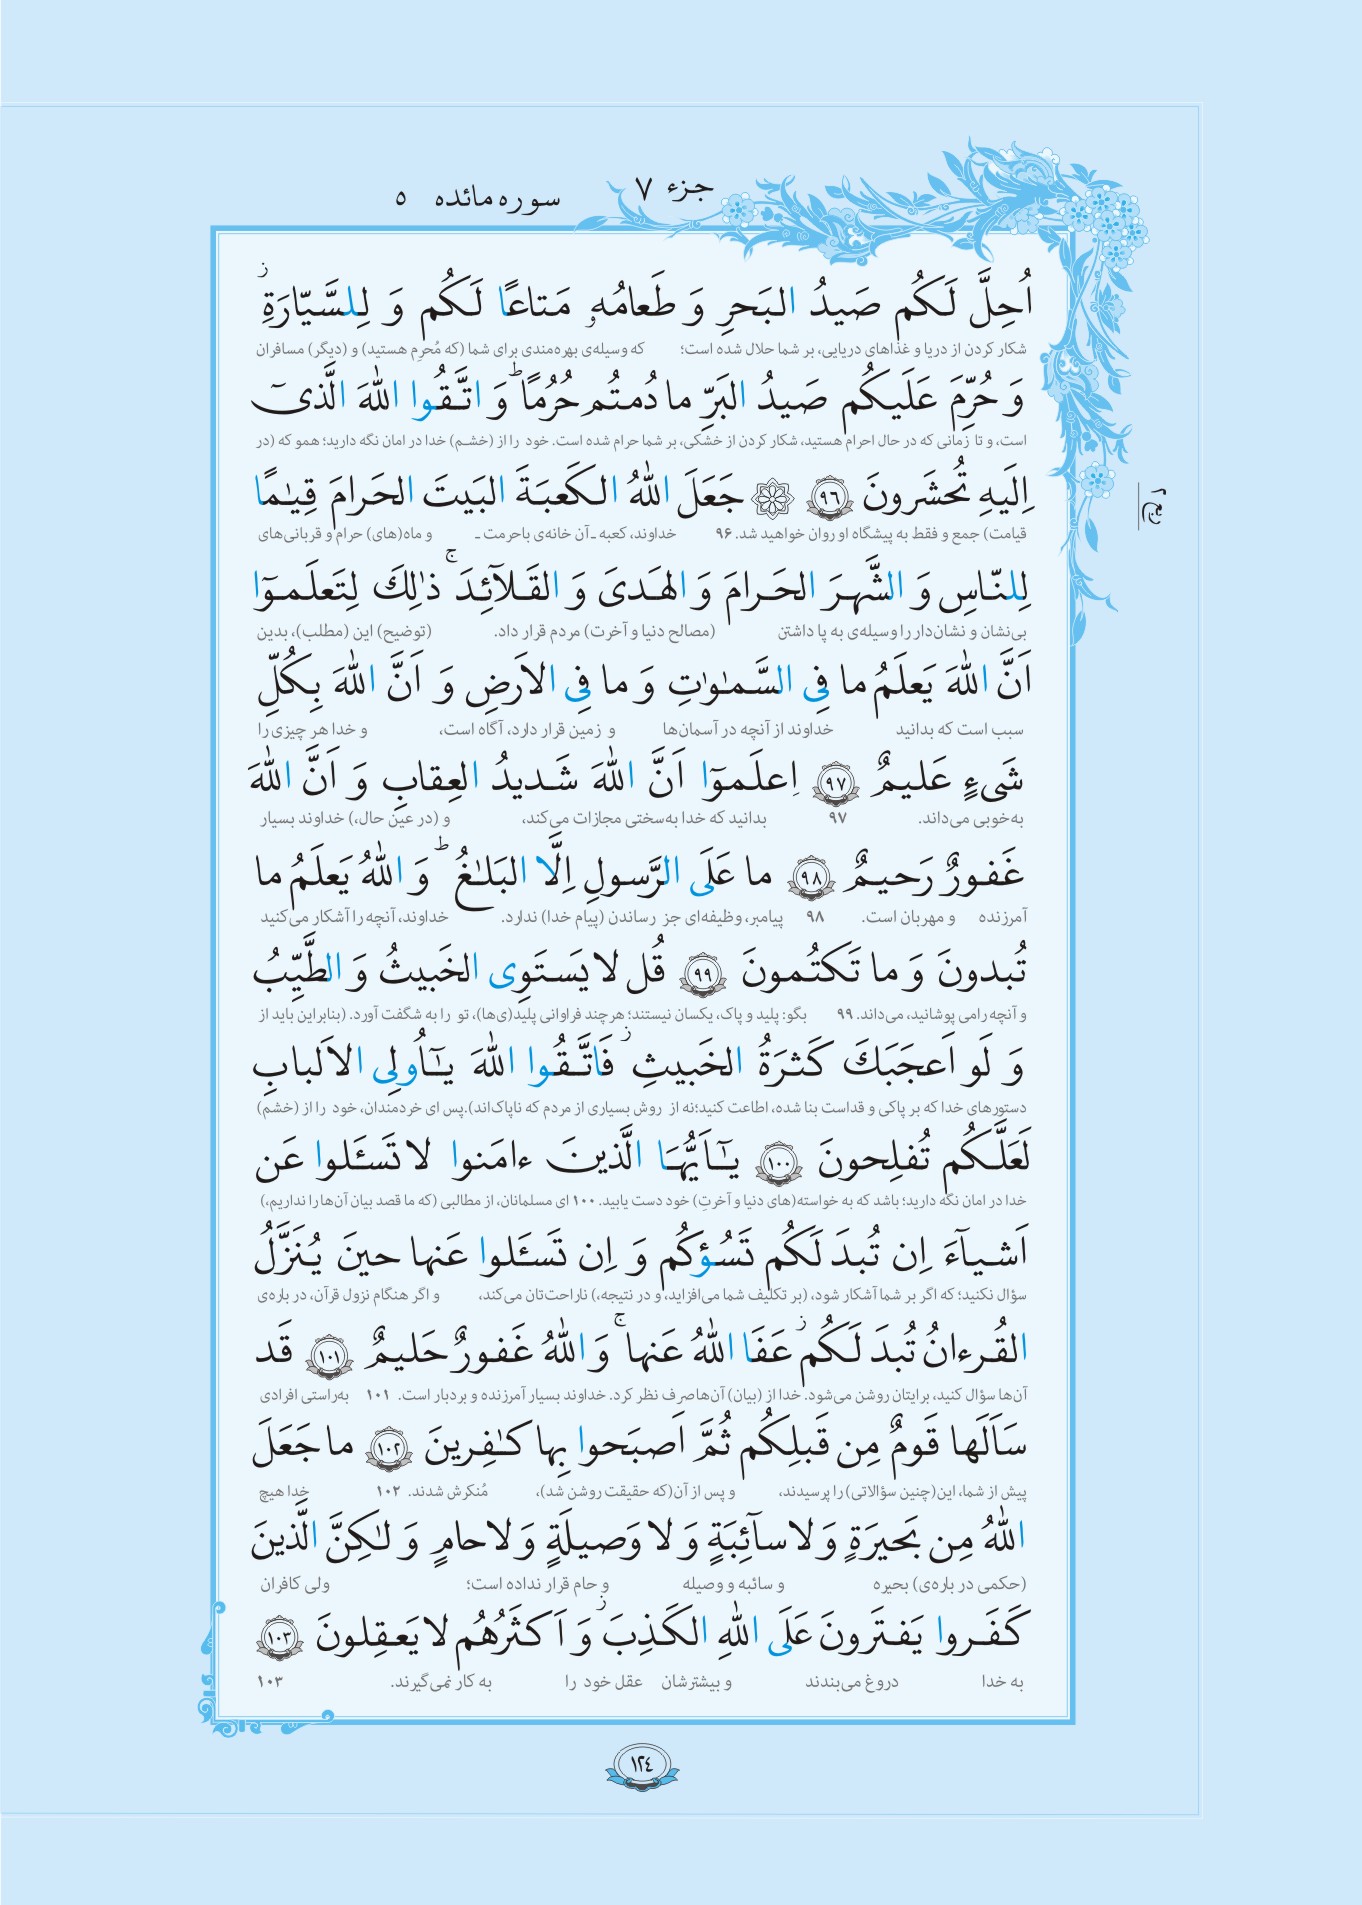 جزء ۷
سوره مائده ۵
اُحِلَّ لَكُم صَيدُ البَحرِ وَ طَعامُهُۥ مَتاعًا لَكُم وَ لِلسَّيّارَةِ ز
شکار کردن از دریا و غذاهای دریایی، بر شما حلال شده است؛ که وسیله‌ی بهره‌مندی برای شما (که مُحرِم هستید) و (دیگر) مسافران
وَ حُرِّمَ عَلَيكُم صَيدُ البَرِّ ما دُمتُم حُرُمًا ط وَ اتَّقُوا اللّٰهَ الَّذىٓ
است، و تا زمانی که در حال احرام هستید، شکار کردن از خشکی، بر شما حرام شده است. خود را از (خشم) خدا در امان نگه دارید؛ همو که (در
اِلَيهِ تُحشَرونَ ﴿۹۶﴾ ۞ جَعَلَ اللّٰهُ الكَعبَةَ البَيتَ الحَرامَ قِيٰمًا
قیامت) جمع و فقط به پیشگاه او روان خواهید شد. ۹۶ خداوند، کعبه ـ آن خانه‌ی باحرمت ـ و ماه(های) حرام و قربانی‌های
لِلنّاسِ وَ الشَّهرَ الحَرامَ وَ الهَدىَ وَ القَلآئِدَ ج ذٰلِكَ لِتَعلَموٓا
بی‌نشان و نشان‌دار را وسیله‌ی به پا داشتن (مصالح دنیا و آخرت) مردم قرار داد. (توضیح) این (مطلب)، بدین
اَنَّ اللّٰهَ يَعلَمُ ما فِى السَّمٰوٰتِ وَ ما فِى الاَرضِ وَ اَنَّ اللّٰهَ بِكُلِّ
سبب است که بدانید خداوند از آنچه در آسمان‌ها و زمین قرار دارد، آگاه است، و خدا هر چیزی را
شَىءٍ عَليمٌ ﴿۹۷﴾ اِعلَموٓا اَنَّ اللّٰهَ شَديدُ العِقابِ وَ اَنَّ اللّٰهَ
به‌خوبی می‌داند. ۹۷ بدانید که خدا به‌سختی مجازات می‌کند، و (در عین حال،) خداوند بسیار
غَفورٌ رَحيمٌ ﴿۹۸﴾ ما عَلَى الرَّسولِ اِلَّا البَلٰغُ ط وَ اللّٰهُ يَعلَمُ ما
آمرزنده و مهربان است. ۹۸ پیامبر، وظیفه‌ای جز رساندن (پیام خدا) ندارد. خداوند، آنچه را آشکار می‌کنید
تُبدونَ وَ ما تَكتُمونَ ﴿۹۹﴾ قُل لا يَستَوِى الخَبيثُ وَ الطَّيِّبُ
و آنچه را می پوشانید، می‌داند. ۹۹ بگو: پلید و پاک، یکسان نیستند؛ هرچند فراوانی پلید(ی‌ها)، تو را به شگفت آورد. (بنابراین باید از
وَ لَو اَعجَبَكَ كَثرَةُ الخَبيثِ ز فَاتَّقُوا اللّٰهَ يٰٓاُولِى الاَلبابِ
دستورهای خدا که بر پاکی و قداست بنا شده، اطاعت کنید؛نه از روش بسیاری از مردم که ناپاک‌اند).پس ای خردمندان، خود را از (خشم)
لَعَلَّكُم تُفلِحونَ ﴿۱۰۰﴾ يٰٓاَيُّهَا الَّذينَ ءامَنوا لا تَسـَٔلوا عَن
خدا در امان نگه دارید؛ باشد که به خواسته(های دنیا و آخرتِ) خود دست یابید. ۱۰۰ ای مسلمانان، از مطالبی (که ما قصد بیان آن‌ها را نداریم،)
اَشيآءَ اِن تُبدَ لَكُم تَسُؤكُم وَ اِن تَسـَٔلوا عَنها حينَ يُنَزَّلُ
سؤال نکنید؛ که اگر بر شما آشکار شود، (بر تکلیف شما می‌افزاید، و در نتیجه،) ناراحت‌تان می‌کند، و اگر هنگام نزول قرآن، در باره‌ی
القُرءانُ تُبدَ لَكُم ز عَفَا اللّٰهُ عَنها ج وَ اللّٰهُ غَفورٌ حَليمٌ ﴿۱۰۱﴾ قَد
آن‌ها سؤال کنید، برایتان روشن می‌شود. خدا از (بیان) آن‌ها صرف نظر کرد. خداوند بسیار آمرزنده و بردبار است. ۱۰۱ به‌راستی افرادی
سَاَلَها قَومٌ مِن قَبلِكُم ثُمَّ اَصبَحوا بِها كٰفِرينَ ﴿۱۰۲﴾ ما جَعَلَ
پیش از شما، این(چنین سؤالاتی) را پرسیدند، و پس از آن(که حقیقت روشن شد)، مُنکرش شدند. ۱۰۲ خدا هیچ
اللّٰهُ مِن بَحيرَةٍ وَ لا سآئِبَةٍ وَ لا وَصيلَةٍ وَ لا حامٍ وَ لٰكِنَّ الَّذينَ
(حکمی در باره‌ی) بحیره و سائبه و وصیله و حام قرار نداده است؛ ولی کافران
كَفَروا يَفتَرونَ عَلَى اللّٰهِ الكَذِبَ ز وَ اَكثَرُهُم لا يَعقِلونَ ﴿۱۰۳﴾
به خدا دروغ می‌بندند و بیشترشان عقل خود را به کار نمی‌گیرند. ۱۰۳
۱۲۴